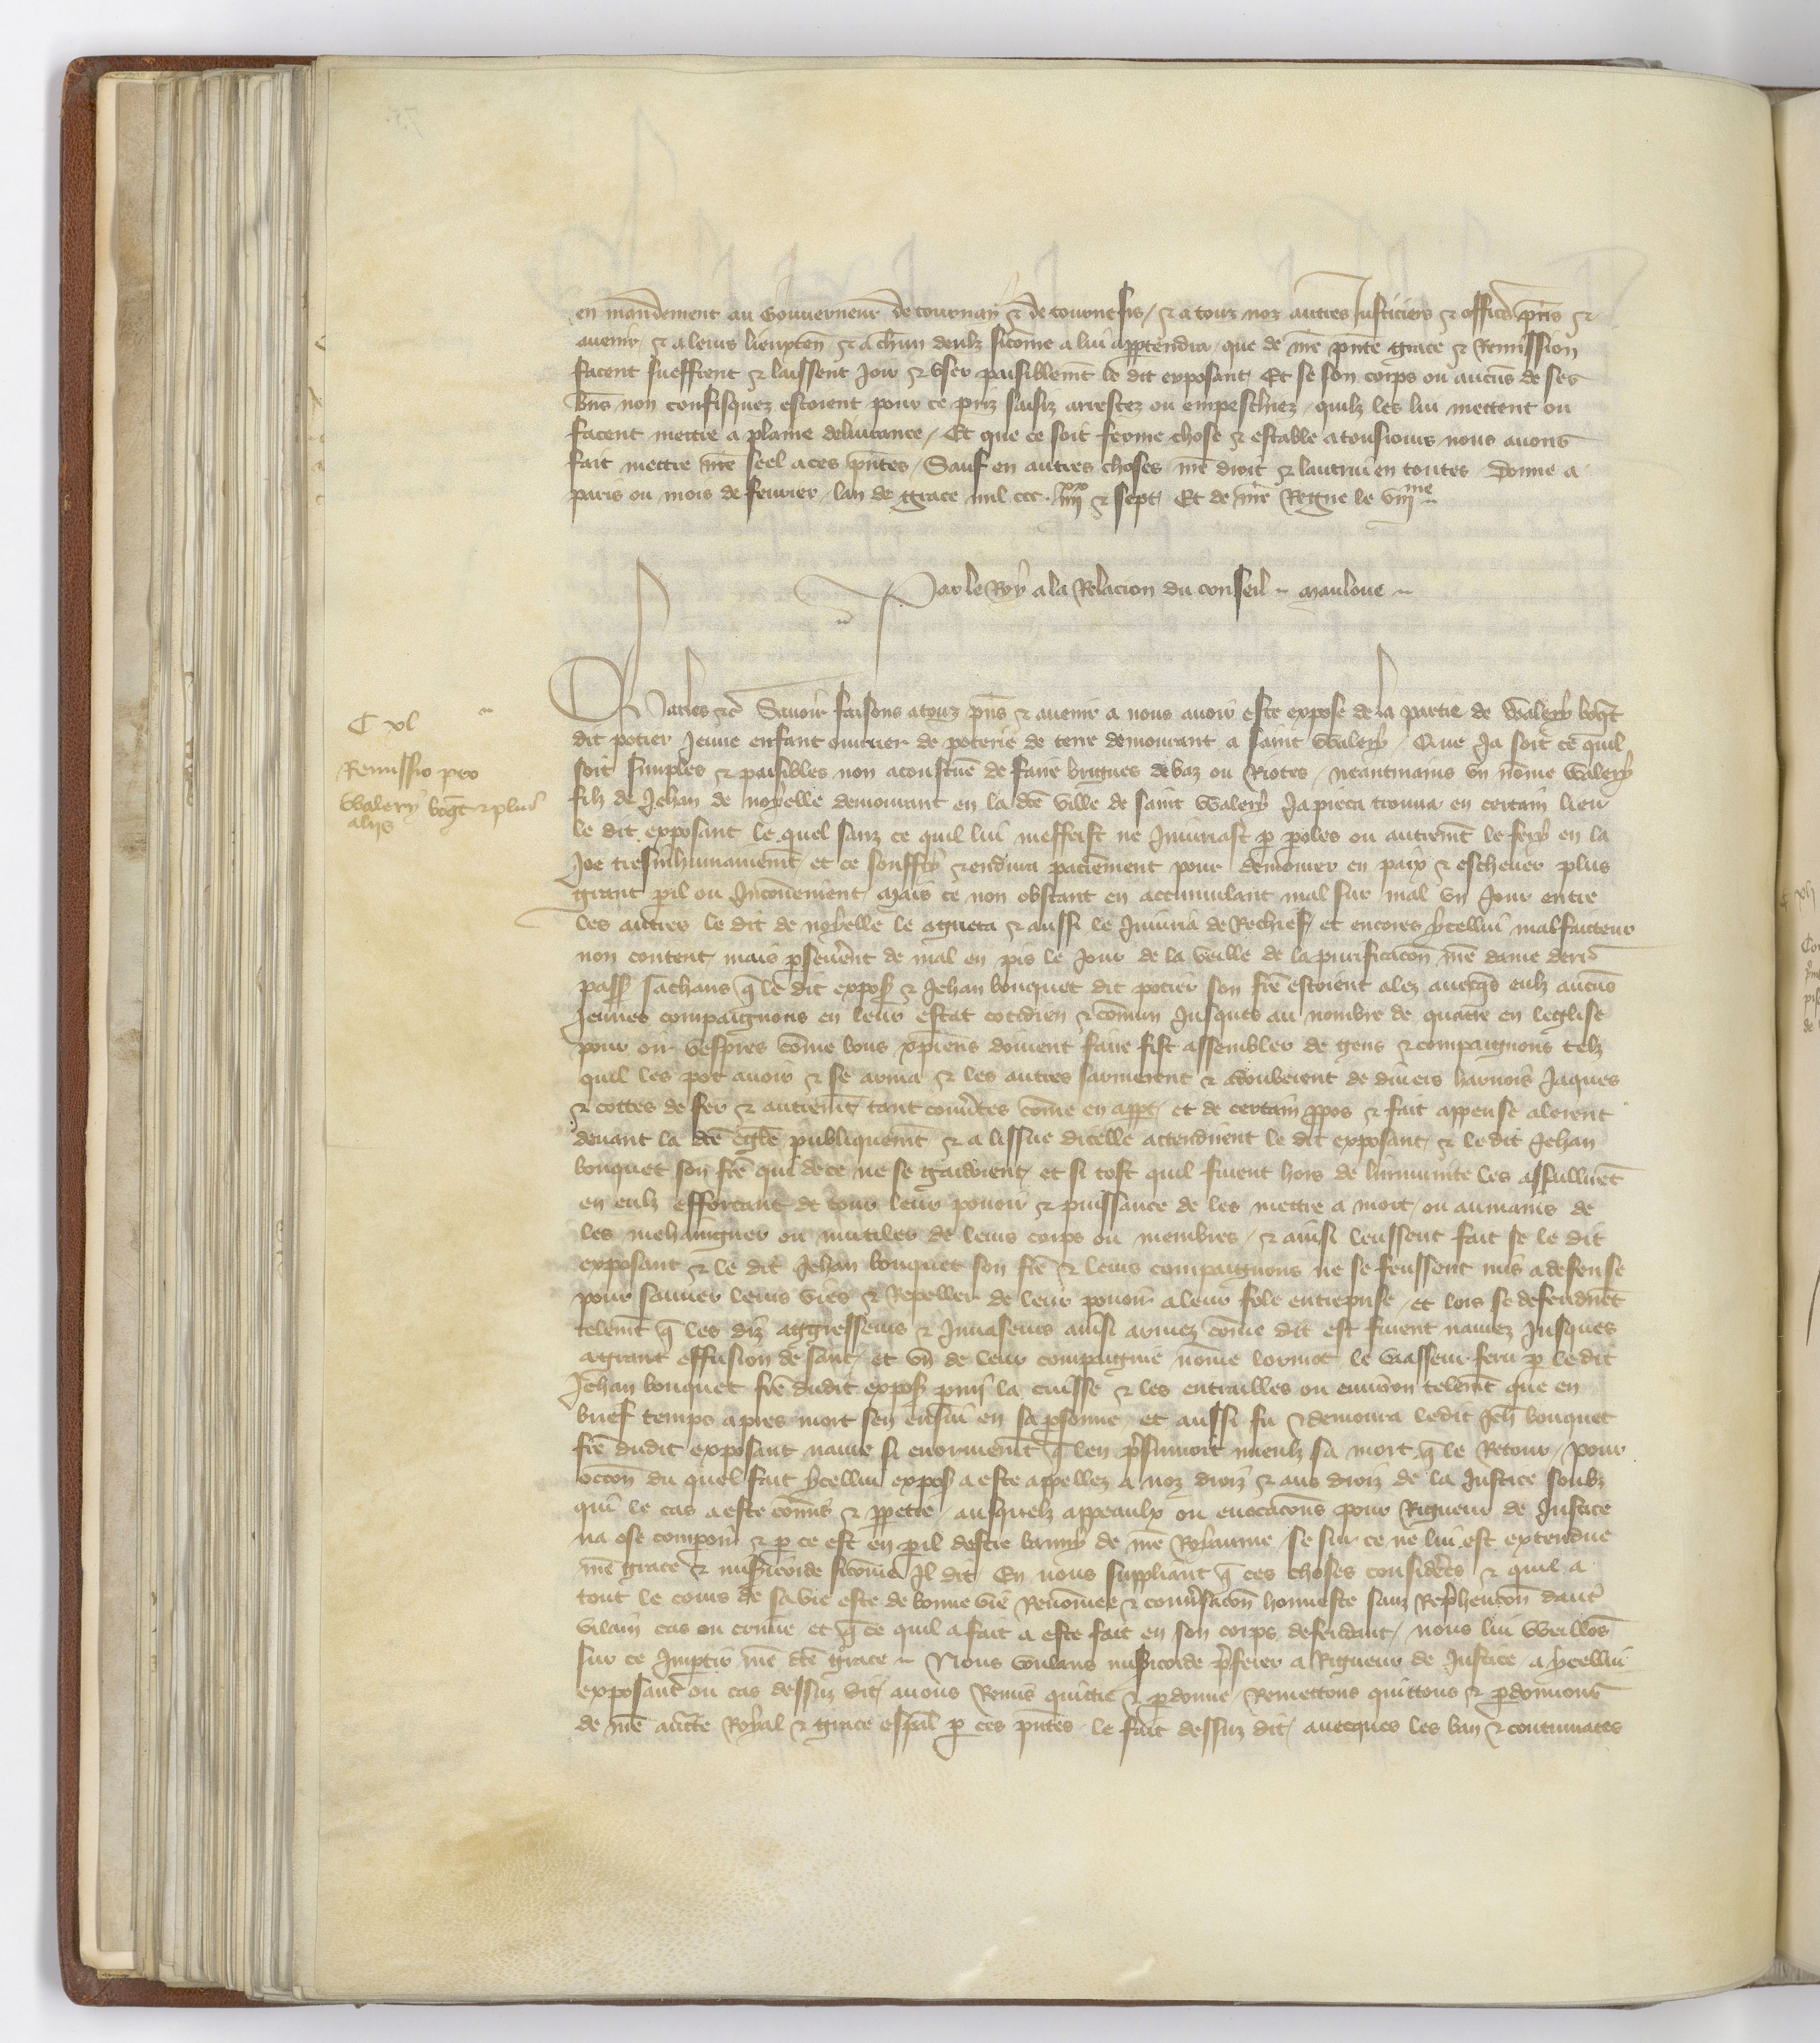 en mandement au Gouverneur de tournay & de tournesis / & a touz noz autres Justiciers & offic pn̄s &
avenir / & a leurs lieuxten̄ & a ch̄un deulx sicōme a lui apptendra / que de nr̄e pn̄te grace & Remission
facent sueffrent & laissent Joir & user paisiblemt̄ le dit exposant / Et se son corps ou aucūs de ses
bn̄s non confisquez estoient pour ce priz saisiz arrestez ou empeschiez / quilz les lui mettent ou
facent mettre a plaine delivrance / Et que ce soit ferme chose & estable a tousiours nous avons
fait mettre nr̄e seel a ces pn̄tes / Sauf en autres choses nr̄e droit & lautrui en toutes Donne a
paris ou mois de fevrier / lan de grace mil ccc . iiij xx & sept / Et de nr̄e Regne le viij me
Par le Roy a la Relacion du conseil ~ Mauloue ~
C xl
Remissio pro
Walery boq̄t & plur̄
aliis
Charles &c Savoir faisons a touz pn̄s & avenir a nous avoir este expose de la partie de Walery boq̄t
dit potier Jeune enfant ouvrier de poterie de terre demourant a saint Walery / Que Ja soit ce quil
soit simples & paisibles non acoustume de faire brigues debaz ou Riotes / neantmains un nōme Walery
filz de Jehan de noyelle demourant en la dc̄e ville de saint Walery Ja pieca trouva en certain lieu
le dit exposant le quel sanz ce quil lui meffeist ne Iniuriast p poles ou autremt̄ le fery en la
Joe tresinhumainemt̄ / et ce souffry & endura paciēment pour demourer en paix & eschever plus
grant pil ou Incōvenient / Mais ce non obstant en accumulant mal sur mal un Jour entre
les autres le dit de noyelle le agueta & aussi le Iniuria de Rechief / et encores ycellui malfaicteur
non content mais pseverēt de mal en pis le Jour de la veille de la purificacōn nr̄e dame derr̄
pass̄ sachans q̄ le dit expos̄ & Jehan bouquet dit potier son fr̄e estoient alez avecq̄s eulx aucūs
Jeunes compaignons en leur estat cotidien & cōmun Jusques au nombre de quatre en leglise
pour oir vespres cōme bons xp̄iens doivent faire fist assembler de gens & compaignons telz
quil les pot avoir & se arma & les autres sarmerent & adouberent de divers harnois Jaques
& cottes de fer & autremt̄ tant couv̄tes cōme en appt / et de certain ppos & fait appense alerent
devant la dc̄e egl̄e publiquemt̄ & a lissue dicelle attendirent le dit exposant / & le dit Jehan
bouquet son fr̄e qui de ce ne se gardoient / et si tost quil furent hors de linmunite les assaillirēt
en eulx efforcant de tout leur povoir & puissance de les mettre a mort / ou aumains de
les mehaignier ou mutiler de leurs corps ou membres / & ainsi leussent fait se le dit
exposant & le dit Jehan bouquet son fr̄e & leurs compaignons ne se feussent mis a defense
pour sauver leurs vies & Repeller de leur povoir a leur fole entreprise / et lors se defendirēt
telemt̄ q̄ les diz aggresseurs & Invaseurs ainsi armez cōme dit est furent navrez Jusques
a grant effusion de sanc / et un de leur compaignie nōme lormot le vasseur feru p le dit
Jehan bouquet fr̄e dudit expos̄ pmi la cuisse & les entrailles ou environ telemt̄ que en
brief temps apres mort sen ensui en sa psonne / et aussi fu & demoura ledit Jeh̄ bouquet
fr̄e dudit exposant navre si enormemt̄ q̄ len p̄sumoit mieulx sa mort q̄ le Retour / pour
occōn du quel fait ycellui expos̄ a este appellez a noz droiz & aus droiz de la Justice soubz
qui le cas a este cōmis & ppetre / ausquelx appeaulx ou evocacōns pour Rigueur de Justice
na ose comparoir & p ce est en peril destre banny de nr̄e Royaume / se sur ce ne lui est extendue
nr̄e grace & misicorde sicōme Il dit / En nous suppliant q̄ ces choses considēes & quil a
tout le cours de sa vie este de bonne vie Renōmee & conv̄sacōn honneste sanz Rep̄hencōn daut̄
vilain cas ou crime / et q̄ ce quil a fait a este fait en son corps defendant / nous lui veillōs
sur ce Impartir nr̄e dc̄e grace ~ Nous voulans misicorde p̄ferer a Rigueur de Justice / a ycellui
exposant ou cas dessuz dit / avons Remis quictie & pdonne / Remettons quittons & pdonnons
de nr̄e auct̄e Royal & grace esp̄al p ces pn̄tes / le fait dessuz dit / avecques les ban & contumaces